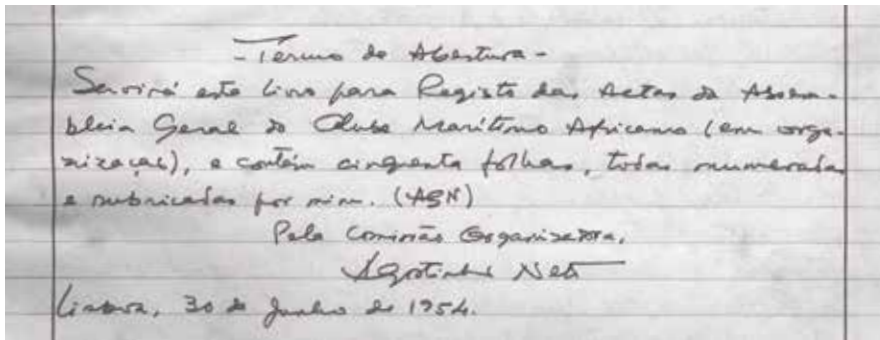 - Termo de Abertura -
Servirá este livro para Registo das Actas da Assem-
bleia Geral do Clube Marítimo Africano (em orga-
nização), e contém cinquenta folhas, todas numeradas
e rubricadas por mim. (AGN)
Pela Comissão Organizadora,
Agostinho Neto
Lisboa, 30 de Junho de 1954.